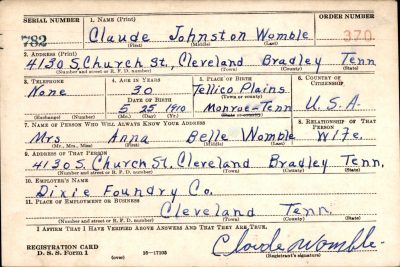 SERIAL NUMBER 1. NAME (Print) ORDER NUMBER
782 Claude Johnston Womble 370
(First) (Middle) (Last)
2. ADDRESS (Print)
4130 S. Church St., Cleveland Bradley Tenn
(Number and street or R. F. D. number) (Town) (County) (State)
3. TELEPHONE 4. AGE IN YEARS 5. PLACE OF BIRTH 6. COUNTRY OF CITIZENSHIP
None 30 Tellico Plains
(Town or county)
DATE OF BIRTH
5 25 1910 Monroe-Tenn U.S.A.
(Exchange) (Number) (Mo.) (Day) (Yr.) (State or country)
7. NAME OF PERSON WHO WILL ALWAYS KNOW YOUR ADDRESS 8. RELATIONSHIP OF THAT PERSON
Mrs Anna Belle Womble Wife.
(Mr., Mrs., Miss) (First) (Middle) (Last)
9. ADDRESS OF THAT PERSON
4130 S. Church St., Cleveland Bradley Tenn,
(Number and street or R. F. D. number) (Town) (County) (State)
10. EMPLOYER'S NAME
Dixie Foundry Co.
11. PLACE OF EMPLOYMENT OR BUSINESS
Cleveland Tenn.
(Number and street or R. F. D. number) (Town) (County) (State)
I AFFIRM THAT I HAVE VERIFIED ABOVE ANSWERS AND THAT THEY ARE TRUE.
Claude Womble
REGISTRATION CARD
D. S. S. Form 1 (over) 16—17105 (Registrant's signature)